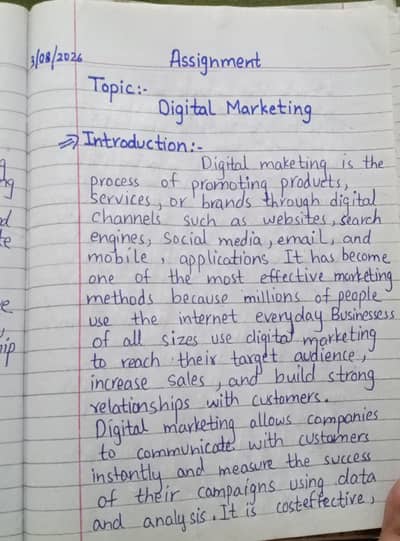 3/08/2026
Assignment
Topic:-
Digital Marketing
⇒ Introduction:-
Digital maketing is the
process of promoting products,
services, or brands through digital
channels such as websites, search
engines, social media, email, and
mobile, applications. It has become
one of the most effective marketing
methods because millions of people
use the internet everyday Businessess
of all sizes use digital marketing
to reach their target audience,
increase sales, and build strong
relationships with customers.
Digital marketing allows companies
to communicate with customers
instantly and measure the success
of their campaigns using data
and analysis. It is costeffective,